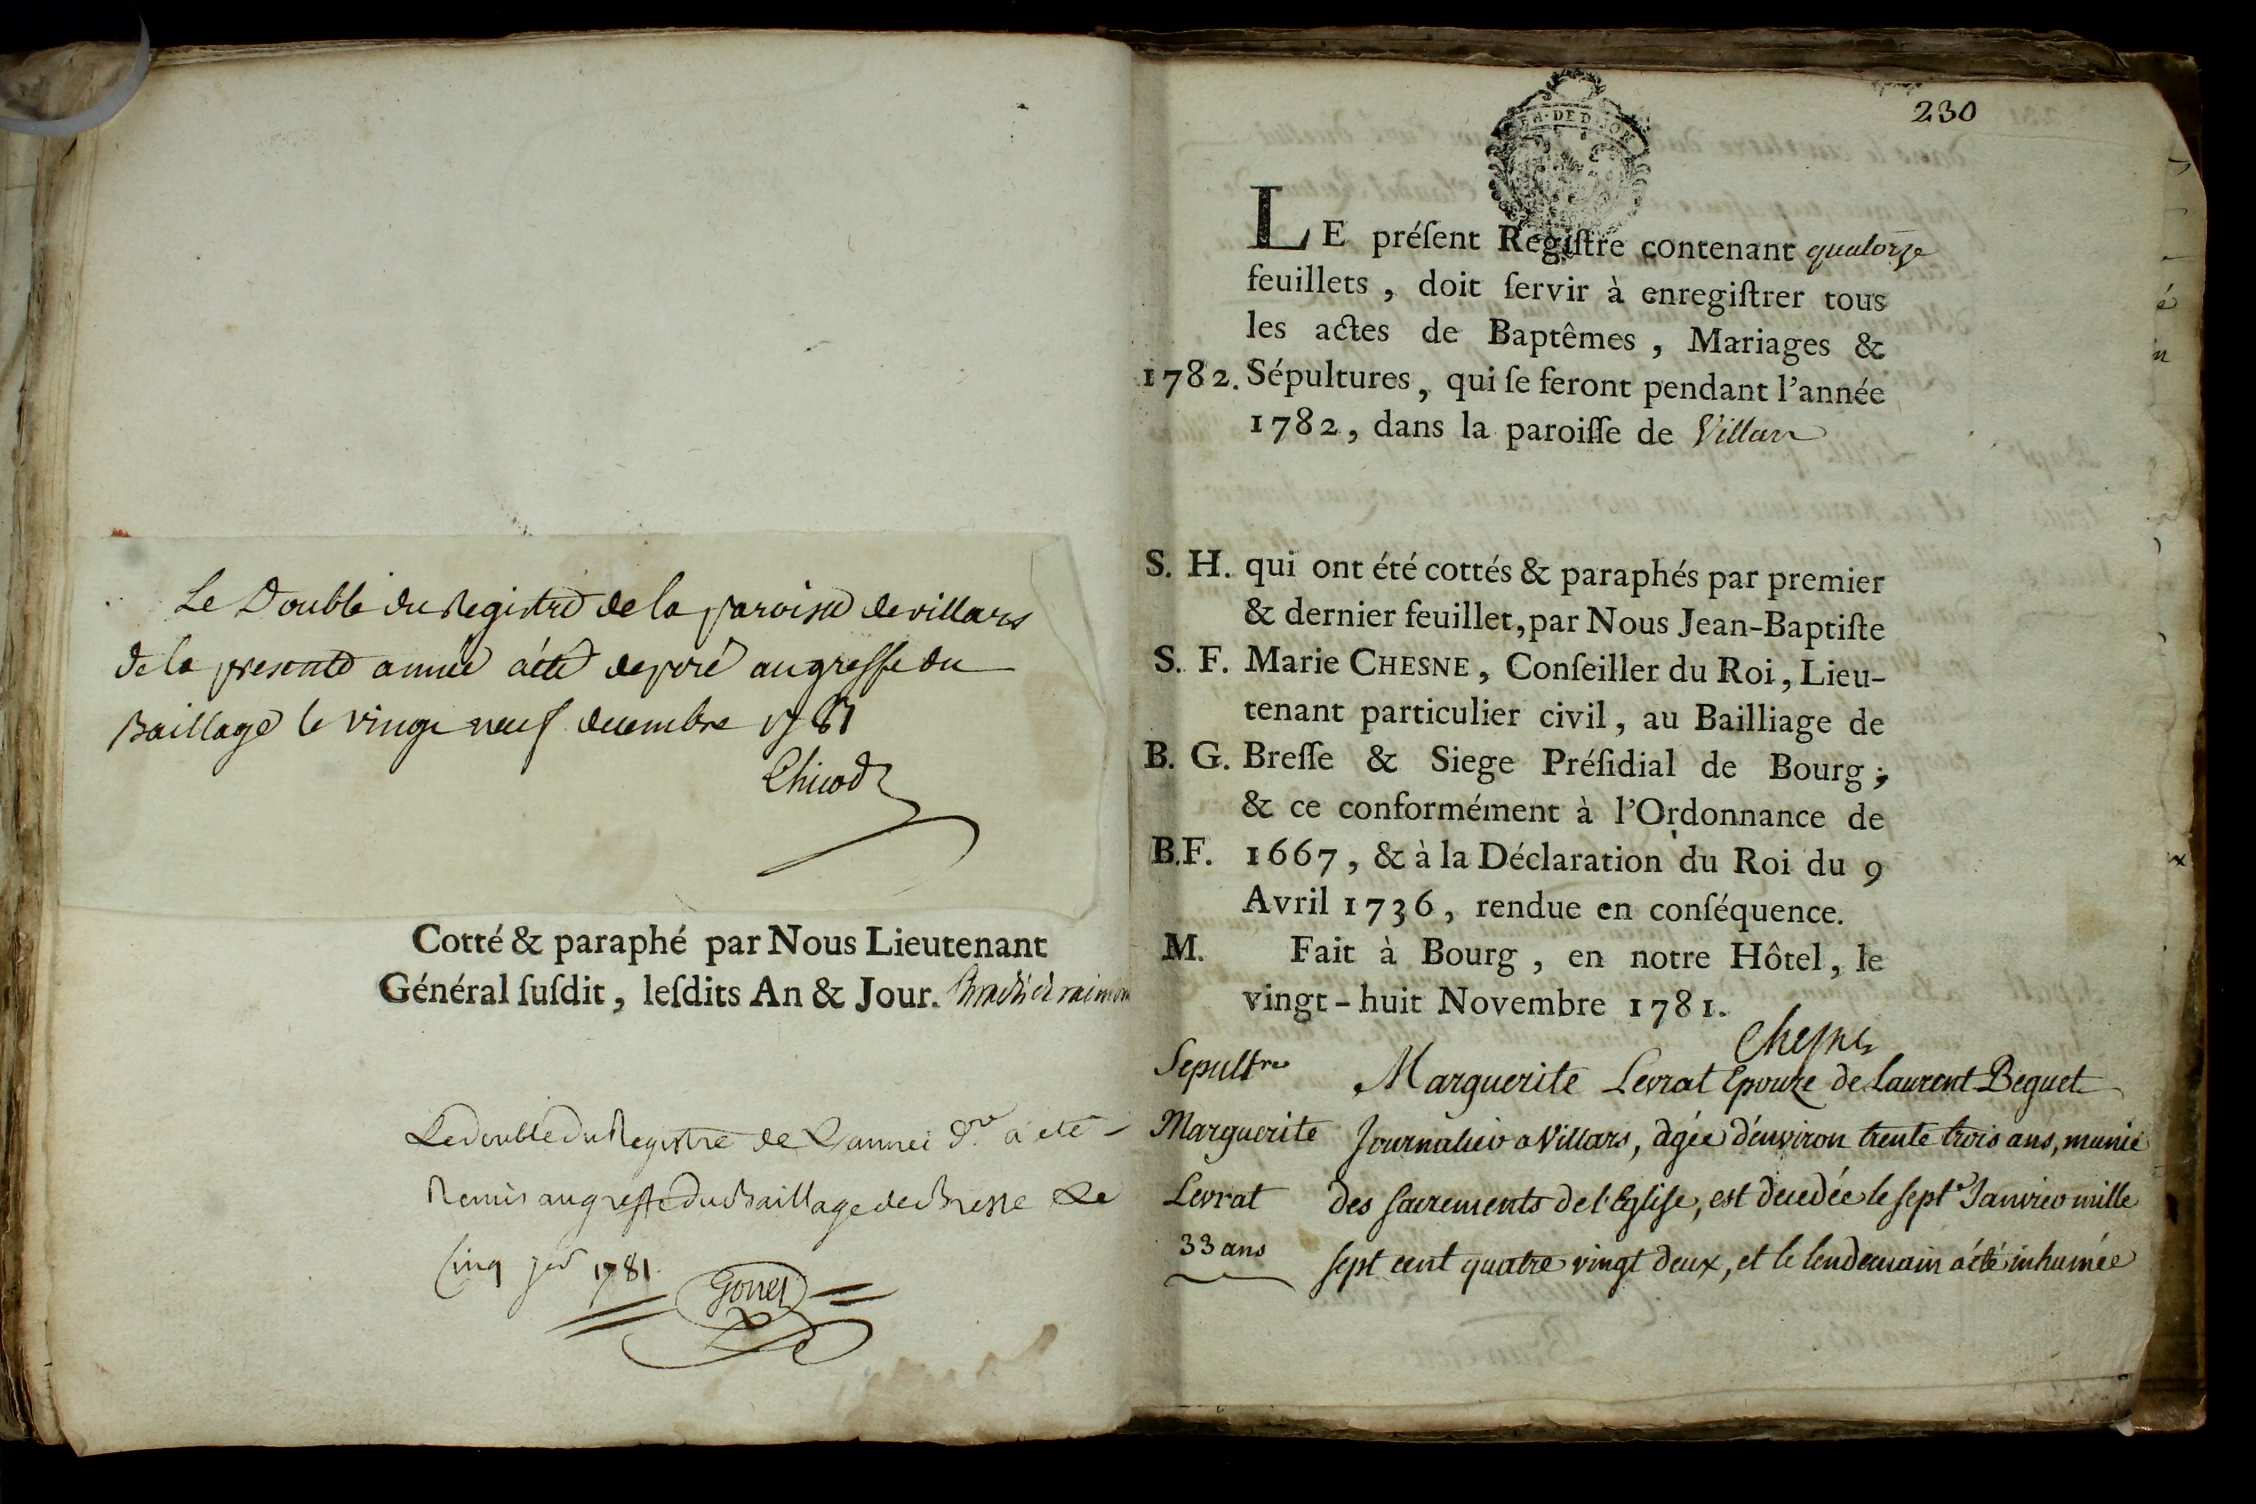 Le Double du Registre de la paroisse de villars
de la presente année a été deposé au greffe du
Baillage le vingt neuf decembre 1781
Chicod
Cotté & paraphé par Nous Lieutenant
Général ſuſdit, leſdits An & Jour.
Le double du Registre de L'année d.re a eté
Remis au greffe du Baillage de Bresse Le
Cinq jer 1781.
Gonet
230
LE préſent Regiſtre contenant quatorze
feuillets, doit ſervir à enregiſtrer tous
les actes de Baptêmes, Mariages &
1782. Sépultures, qui ſe feront pendant l'année
1782, dans la paroiſſe de Villars
S. H. qui ont été cottés & paraphés par premier
& dernier feuillet, par Nous Jean-Baptiſte
S. F. Marie CHESNE, Conſeiller du Roi, Lieu-
tenant particulier civil, au Bailliage de
B. G. Breſſe & Siege Préſidial de Bourg;
& ce conformément à l'Ordonnance de
B.F. 1667, & à la Déclaration du Roi du 9
Avril 1736, rendue en conſéquence.
M. Fait à Bourg, en notre Hôtel, le
vingt-huit Novembre 1781.
Chesne
Sepultre Marguerite Levrat Epouze de Laurent Beguet
Marguerite Journalier a Villars, agée d'environ trente trois ans, munie
Levrat des sacrements de l'Eglise, est decedée le sept Janvier mille
33 ans sept cent quatre vingt deux, et le lendemain a été inhumée